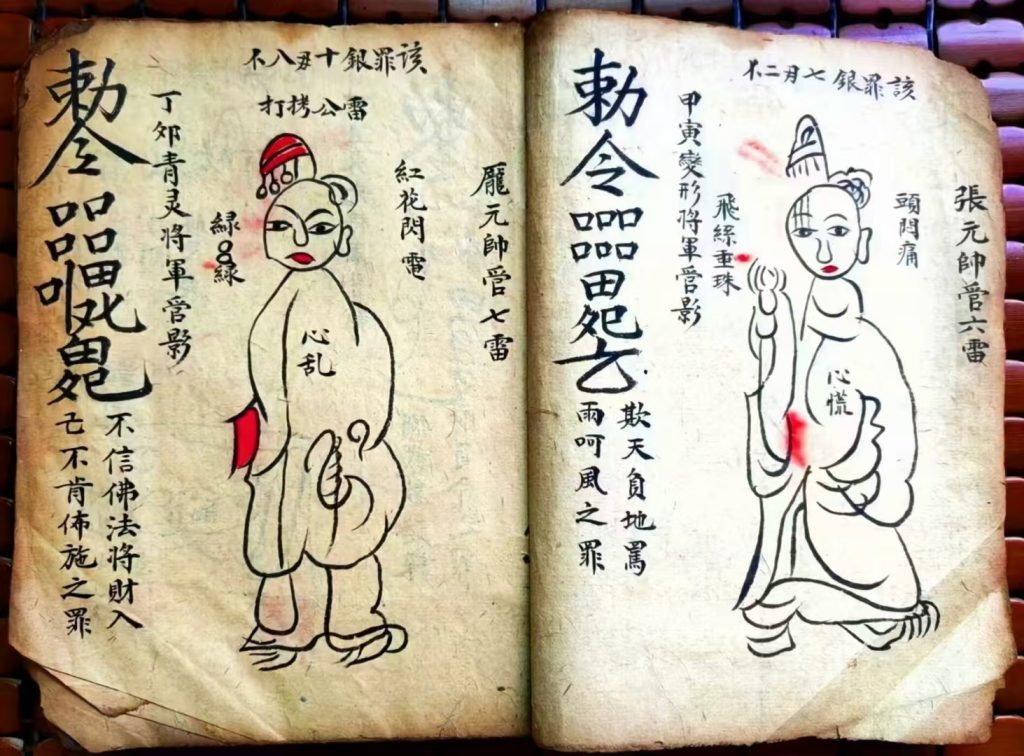 該罪銀七月二不
張元帥菅六雷
頭悶痛
心慌
飛絲垂珠
甲寅變形將軍菅影
勅令
欺天負地罵
雨呵風之罪
該罪銀十毋八不
雷公拷打
龐元帥菅七雷
紅花閃電
心乱
緑
緑
丁夘青灵將軍菅影
勅令
不信佛法將財入
己不肯佈施之罪